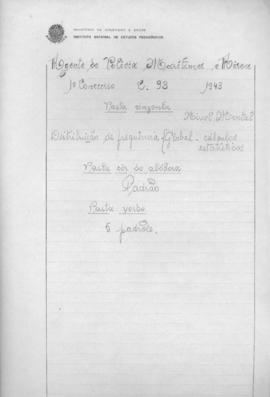 MINISTÉRIO DA EDUCAÇÃO E SAÚDE
INSTITUTO NACIONAL DE ESTUDOS PEDAGÓGICOS
Agente da Polícia Marítima e Aérea
1º Concurso C. 93 1943
Pasta cinzenta
Nível Mental
Distribuição de frequência global - cálculos
estatísticos
Pasta côr de abóbora
Padrão
Pasta verde
6 padrões.